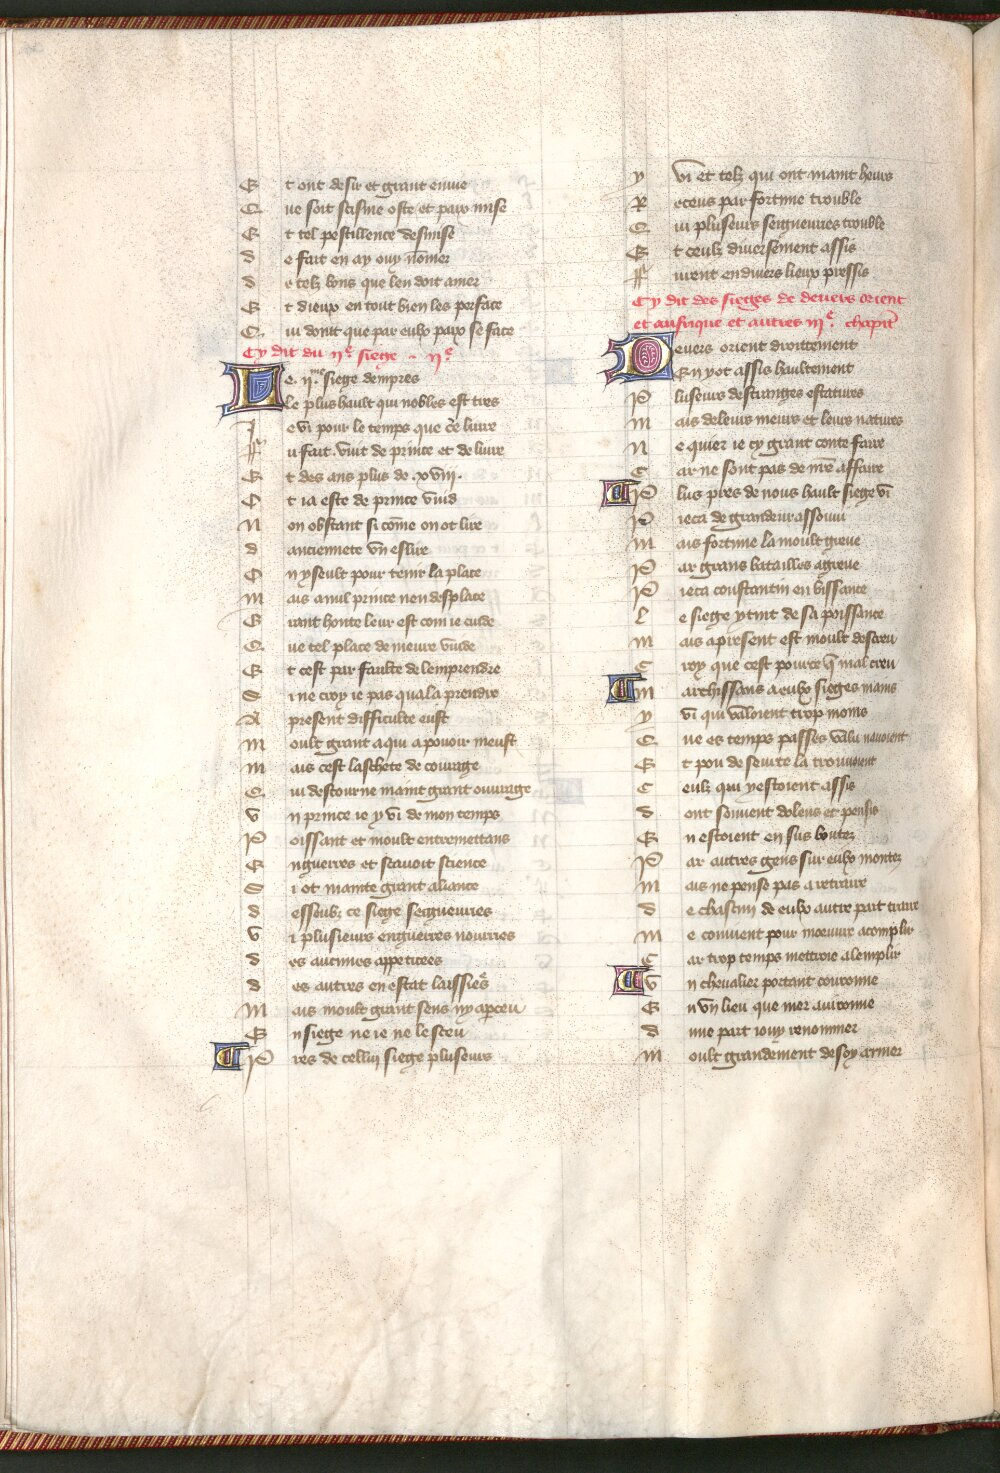 Et ont desir et grant envie
Que soit scisme oste et paix mise
Et tel pestillence desmise
de fait en ay ouy nom̄er
de telz bons que len doit amer
Et dieux en tout bien les parface
Qui doint que par eulx paix se face
Cy dit du ii.e siege . ii.e
Le .ii.me siege dempres
Le plus hault qui nobles est tres
Je vi pour le temps que ce livre
ffu fait vuit de prince et de livre
Et des ans plus de .xviii.
Et ia este de prince vuid
Non obstant si com̄e on ot lire
danciennete vn eslire
On y seult pour tenir la place
mais a nul prince nen desplace
Grant honte leur est com ie cuide
Que tel place demeure vuide
Et cest par faulte de lemprendre
Si ne croy ie pas qua la prendre
A present difficulte eust
moult grant a qui a pouoir meust
mais cest laschete de courage
Qui destourne maint grant ouurage
vn prince ie y vi de mon temps
Poissant et moult entremettans
En guerres et scauoit science
Si ot mainte grant aliance
dessoubz ce siege seigneuries
vi plusieurs en guerres nourries
des aucunes appeticees
des autres en estat laissiees
Mais moult grant sens ny apceu
En siege ne ie ne le sceu
Pres de cellui siege pluseurs
y vi et telz qui ont maint heurs
Receus par fortune trouble
Qui pluseurs seigneuries trouble
Et ceulx diuersement assis
ffurent en diuers lieux pressis
Cy dit des sieges de deuers orient
et aufrique et autres iii.e chapitre
Deuers orient droittement
En y ot assis haultement
Pluseurs destranges estatures
mais de leurs meurs et leurs natures
Ne quier ie cy grant conte faire
Car ne sont pas de nr̄e affaire
Plus pres de nous hault siege vi
Pieca de grandeur assouui
mais fortune la moult greue
Par grans batailles agreue
Pieca constantin en vissance
Le siege y tint de sa poissance
mais apresent est moult descreu
Croy que cest pource q̄ mal creu
Marchissans a eulx sieges mains
y vi qui valoient trop moins
Que es temps passes valu nauoient
Et pou de seurte la trouuoient
Ceulz qui y estoient assis
dont souuent dolens et pensis
En estoient en sus boutez
Par autres gens sur eulx montez
mais ne pense pas a retraire
de chascun de eulx autre part traire
Me conuient pour mœuure acomplir
Car trop temps mettroie a lemplir
vn chevalier portant couronne
En vn lieu que mer auironne
dune part iouy renommer
moult grandement de soy armer